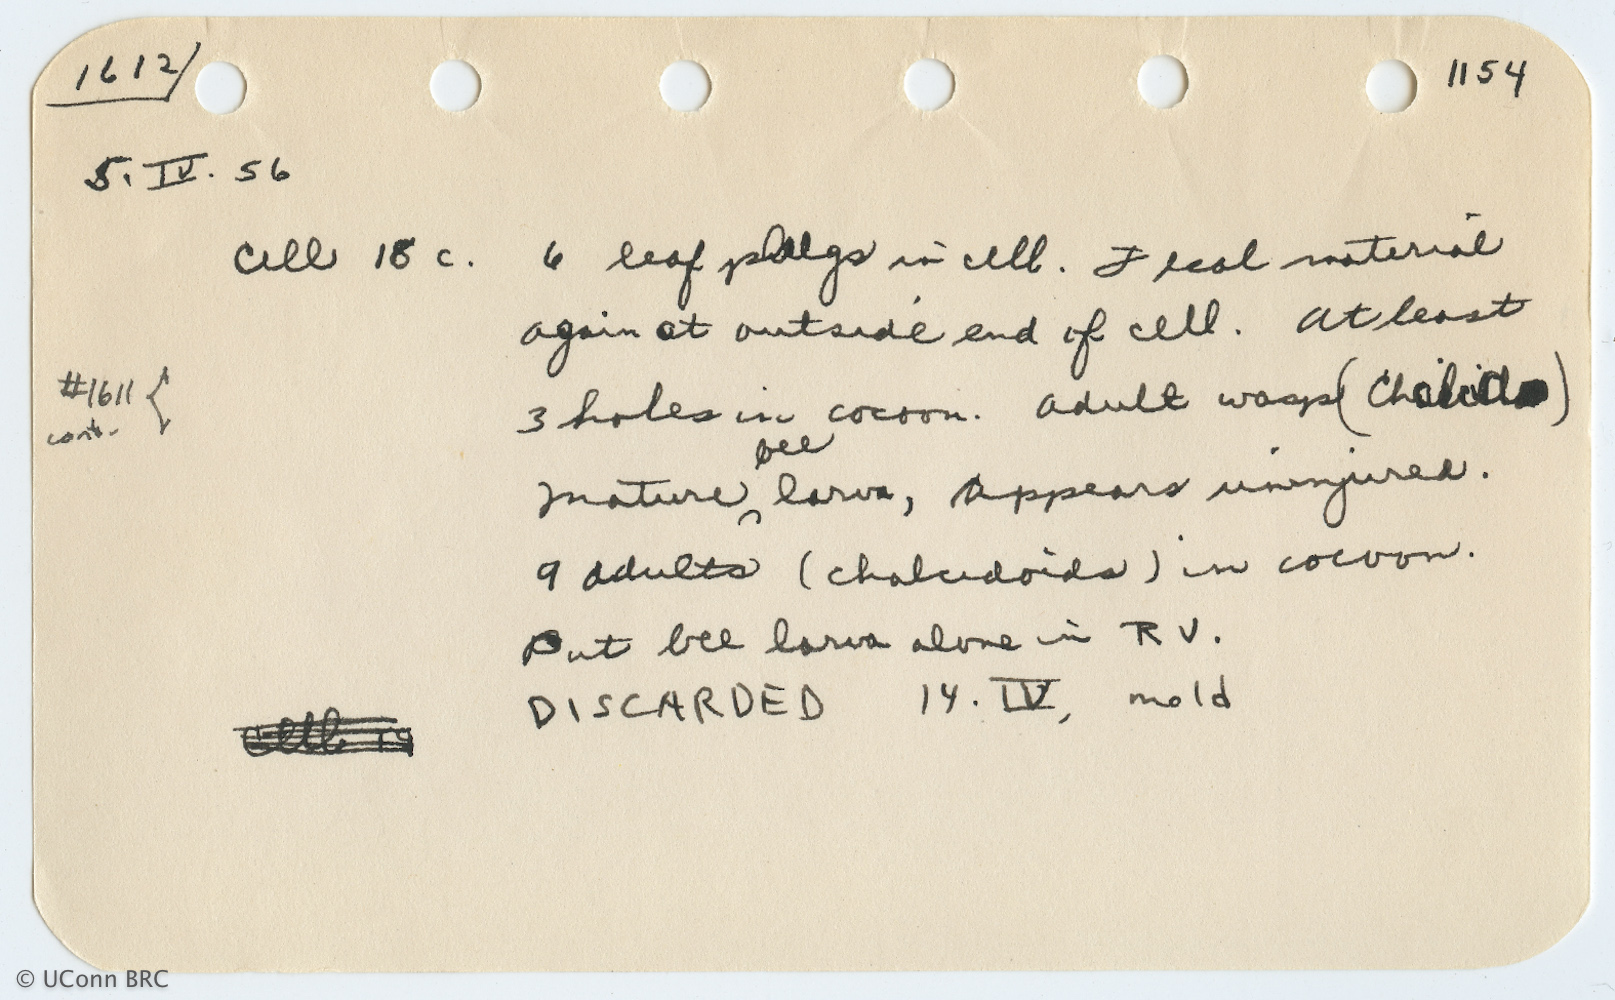 1612 1154
5. IV. 56
Cell 18 c. 6 leaf plugs in cell. Fecal material
against outside end of cell. At least
#1611 3 holes in cocoon. Adult wasp (
cont. bee
mature larva, appears uninjured.
9 adults (chalcidoids) in cocoon.
Put bee larva alone in RV.
DISCARDED 14. IV, mold
Cell 19
© UConn BRC